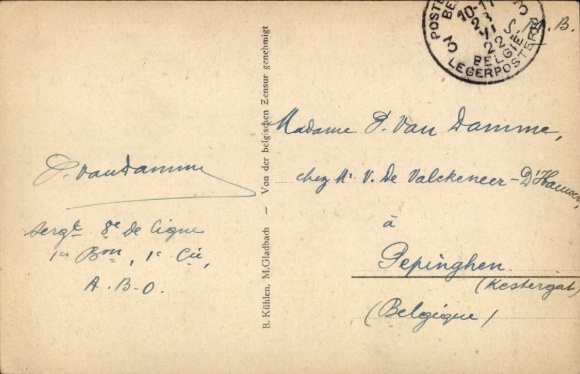 POST
BE
10-11
23
VI
22
BELGIE
LEGERPOSTERIJ
3
3
S. M. B.
Madame P. Van Damme,
chez Mr V. De Valckeneer-D'
à
Pepinghen
(Kestergat)
(Belgique)
B. Kühlen, M.Gladbach — Von der belgischen Zensur genehmigt
P. VanDamme
Sergt 8e de Ligne
1er Bon, 1e Cie,
A.B.O.